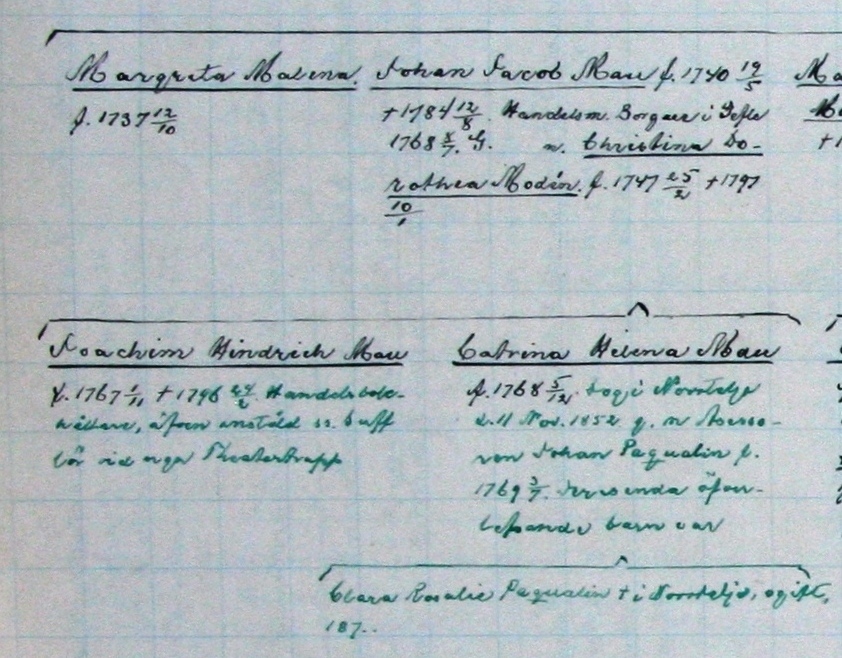 Margreta Malena.
f. 1737 12/10
Johan Jacob Mau f. 1740 19/5
+1784 12/8. Handelsm. Borgare i Gefle
1768 8/7. G. m. Christina Do-
rothea Modin. f. 1747 25/2 +1797
10/1
Ma
+1
Joachim Hindrich Mau
f. 1767 1/11 +1796 24/2. Handelsbok-
hållare, äfven anstäld ss. buff
vid nga Theatertrupp
Catrina Helena Mau
f. 1768 5/12. Dog i Norrtelje
d. 11 Nov. 1852 g. m Assesso-
ren Johan Paqualin f.
1769 3/7. Deras enda öfver-
lefvande barn var
Clara Rosalie Paqualin + i Norrtelje, ogift,
187..